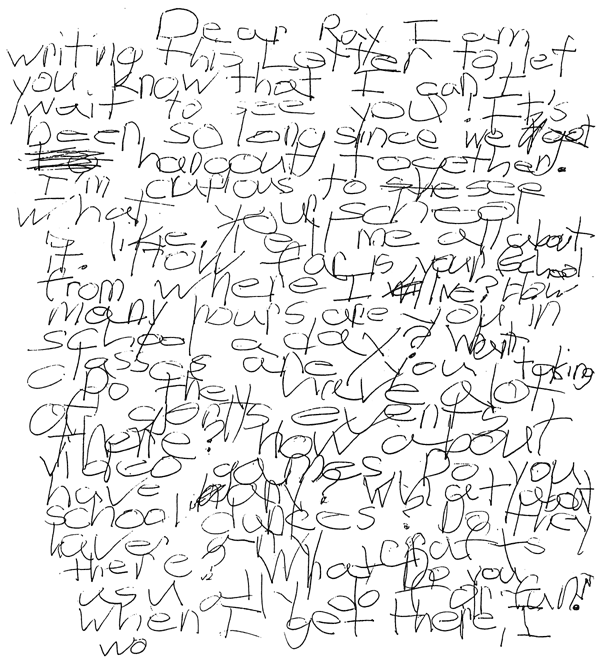 Dear Ray I am
writing this Letter to let
you. know that I can't
wait to see you! It's
been so long since we
hangout together.
I'm curious to see
what your school
is like. Tell me all about
it. How far is your school
from where I live? How
many hours are you in
school a day? What
classes are you taking
Do they have a lot
of sports events
there? how about
video games Do you
have any? What about
school dances? Do they
have that
there? What do you
usually do for fun?
when I get there, I
wo